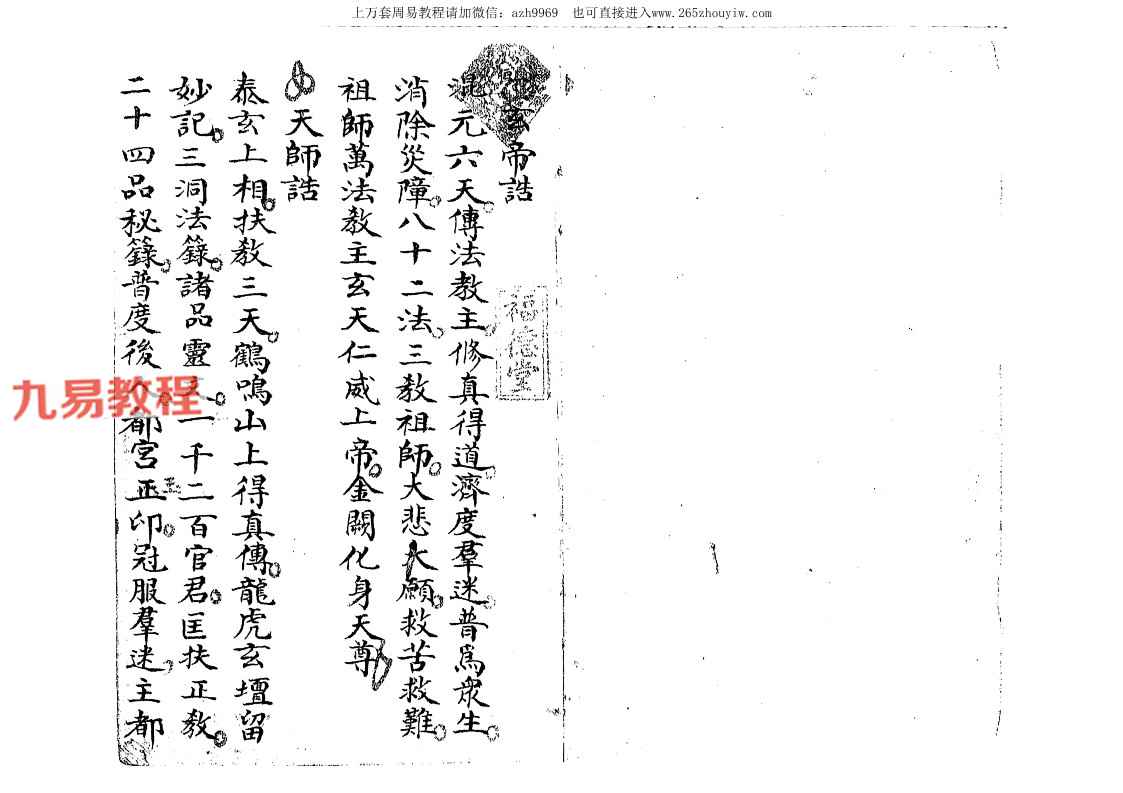 上万套周易教程请加微信：azh9969　也可直接进入www.265zhouyiw.com
玄帝誥
混元六天傳法教主修真得道濟度羣迷普爲衆生
消除災障八十二法三教祖師大悲大願救苦救難
祖師萬法教主玄天仁威上帝金闕化身天尊
天師誥
泰玄上相扶教三天鶴鳴山上得真傳龍虎玄壇留
妙記三洞法籙諸品靈文一千二百官君匡扶正教
二十四品秘籙普度後人都宮正玉印冠服羣迷主都
福德堂
九易教程